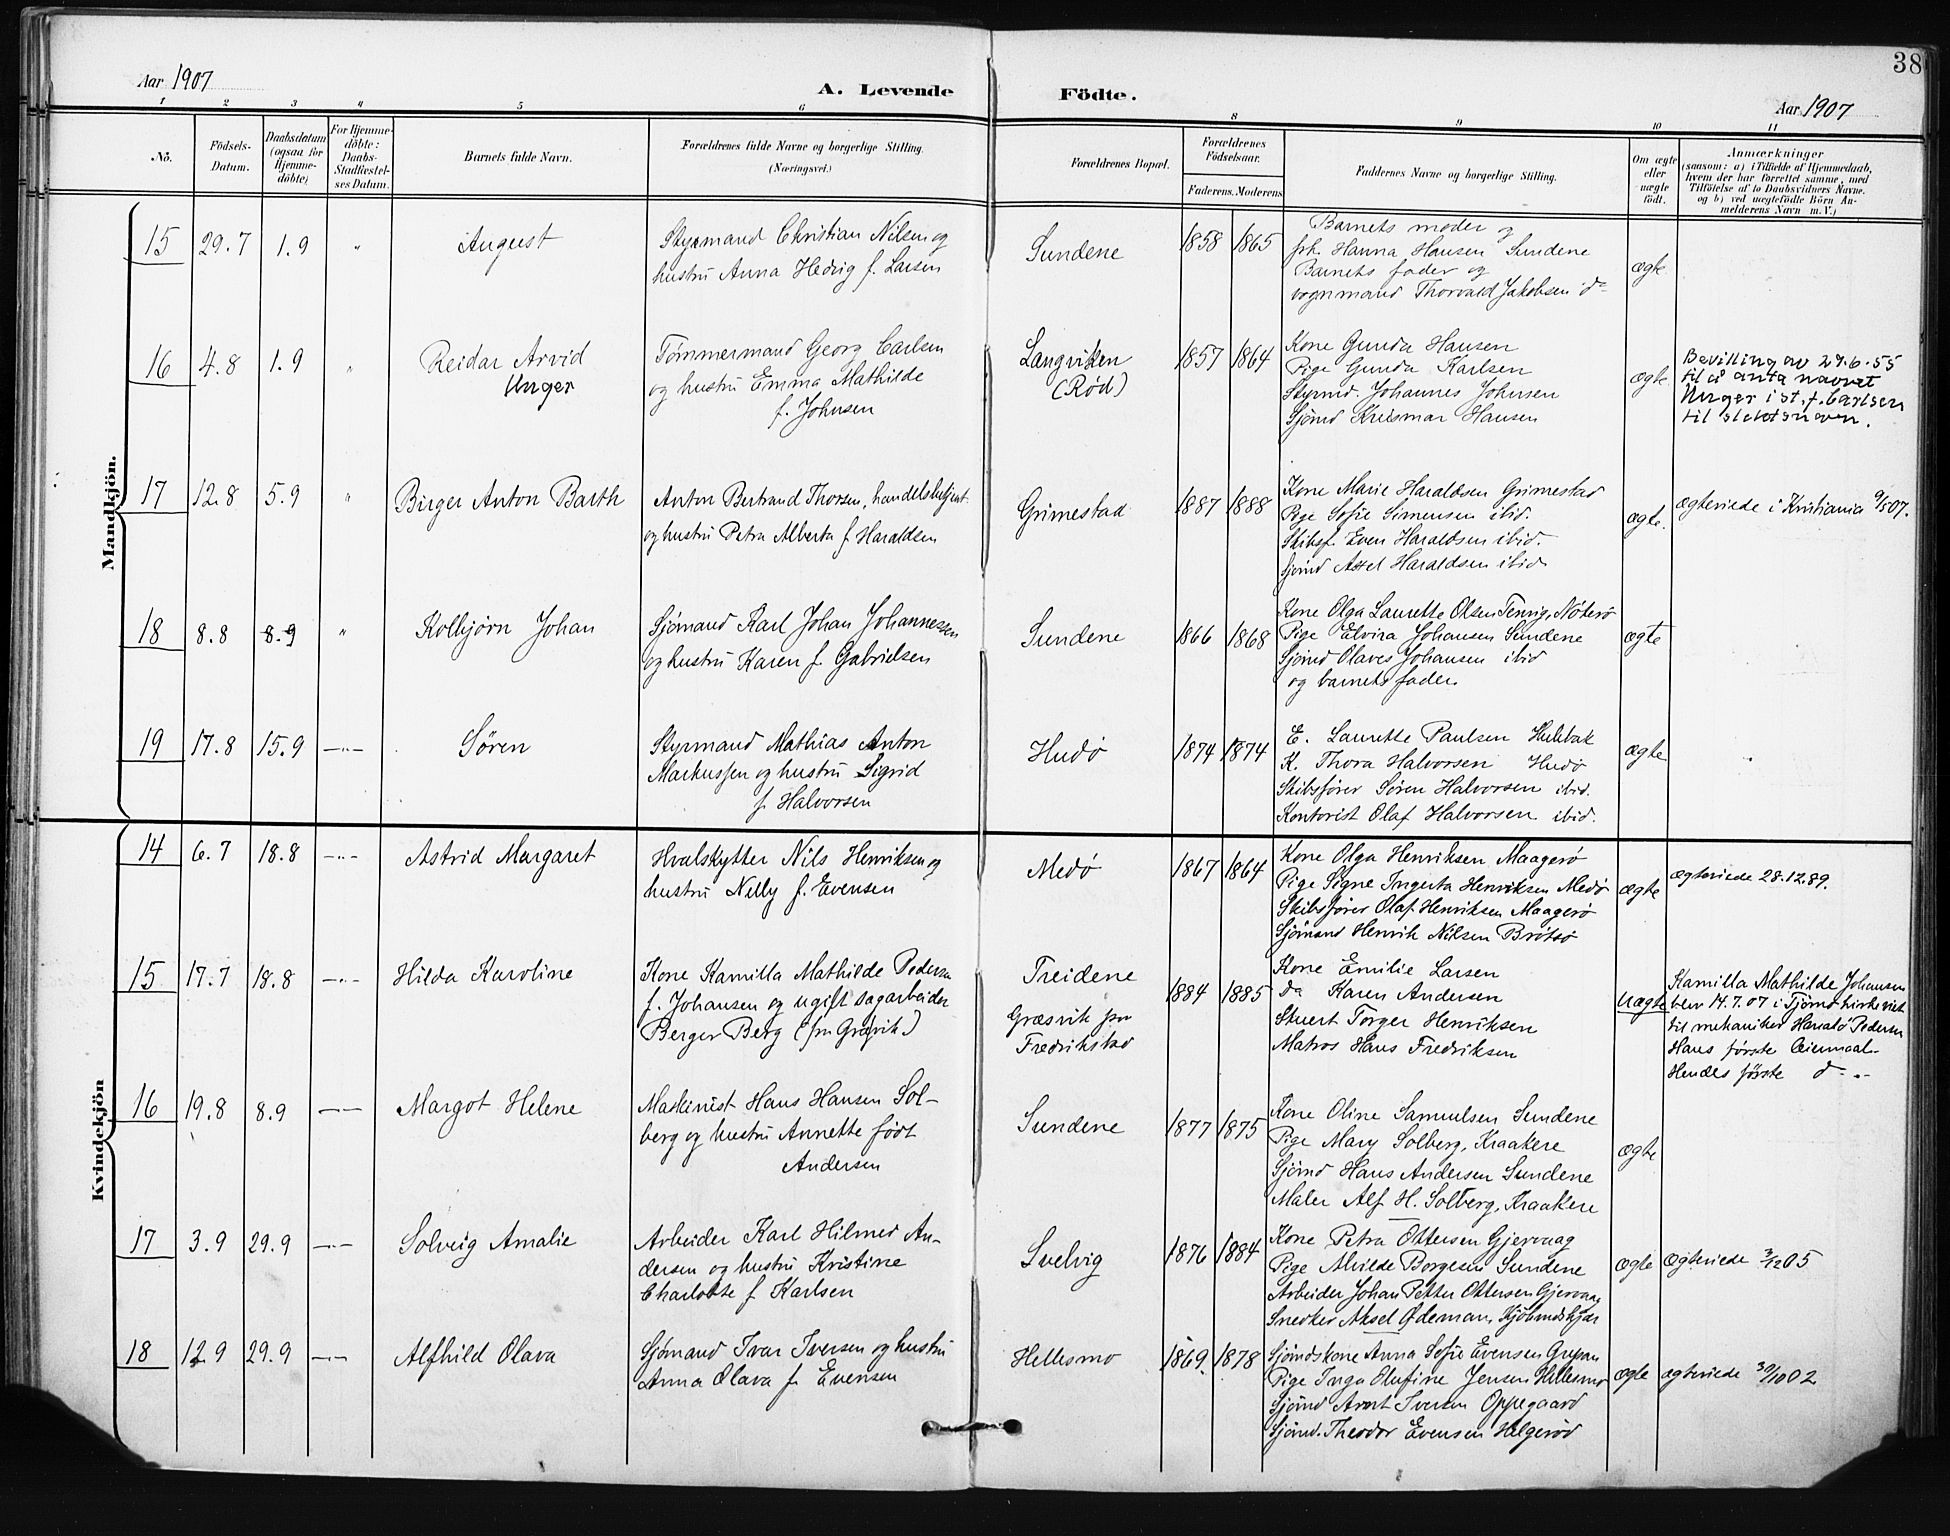 38
Aar 1907
A. Levende Födte.
Aar 1907
1 2 3 4 5 6 8 9 10 11
No.
Födsels-
Datum.
Daabsdatum
(ogsaa for
Hjemme-
döbte)
For Hjemme-
döbte:
Daabs-
Stadfæstel-
ses Datum.
Barnets fulde Navn.
Forældrenes fulde Navne og borgerlige Stilling.
(Næringsvei.)
Forældrenes Bopæl.
Forældrenes
Födselsaar.
Faderens. Moderens
Faddernes Navne og borgerlige Stilling.
Om ægte
eller
uægte
födt.
Anmærkninger
(saasom: a) i Tilfælde af Hjemmedaab,
hvem der har forrettet samme, med
Tilföielse af to Daabsvidners Navne.
og b) ved uægtefödte Börn An-
melderens Navn m. V.)
Mandkjön.
15 29.7 1.9 " August
Styrmand Christian Nilsen og
hustru Anna Hedvig f. Larsen
Sundene
1858 1865
Barnets moder og
frk. Hanna Hansen Sundene
Barnets fader og
vognmand Thorvald Jakobsen do
ægte
16 4.8 1.9 " Reidar Arvid
Unger
Tømmermand Georg Carlsen
og hustru Emma Mathilde
f. Johnsen
Langviken
(Rød)
1857 1864
Kone Gunda Hansen
Pige Gunda Karlsen
Styrmd. Johannes Johnsen
Sjømd Hansen
ægte
Bevilling av 27.6.55
til å anta navnet
Unger i st. f. Carlsen
til slektsnavn.
17 12.8 5.9 " Birger Anton Barth
Anton Bertrand Thorsen, handelsbetjent
og hustru Petra Alberta f Haraldsen
Grimestad
1887 1888
Kone Marie Haraldsen Grimestad
Pige Sofie Simensen ibid.
Skibsf. Even Haraldsen ibid.
Sjømd Axel Haraldsen ibid
ægte.
ægteviede i Kristiania 9/5 07.
18 8.8 8.9 " Kolbjørn Johan
Sjømand Karl Johan Johannessen
og hustru Karen f. Gabrielsen
Sundene
1866 1868
Kone Olga Laurette Olsen Tenvig, Nøterø
Pige Elvira Johansen Sundene
Sjømd Olaves Johansen ibid
og barnets fader.
ægte
19 17.8 15.9 —"— Søren
Styrmand Mathias Anton
Markussen og hustru Sigrid
f. Halvorsen
Hudø
1874 1874
E. Laurette Paulsen Hulebak
K. Thora Halvorsen Hudø
Skibsfører Søren Halvorsen ibid.
Kontorist Olaf Halvorsen ibid.
ægte
Kvindekjön
14 6.7 18.8 —"— Astrid Margaret
Hvalskytter Nils Henriksen og
hustru Nelly f. Evensen
Medø
1867 1864
Kone Olga Henriksen Maagerø
Pige Signe Ingerta Henriksen Medø
Skibsfører Olaf Henriksen Maagerø
Sjømand Henrik Nilsen Brøtsø
ægte
ægteviede 28.12.89.
15 17.7 18.8 —"— Hilda Karoline
Kone Kamilla Mathilde Pedersen
f. Johansen og ugift sagarbeider
Berger Berg (fra )
Treidene
Græsvik pr
Fredrikstad
1884 1885
Kone Emilie Larsen
do Karen Andersen
Stuert Torger Henriksen
Matros Hans Fredriksen
Uægte
Kamilla Mathilde Johansen
blev 14.7.07 i Tjømø kirke viet
til mekaniker Harald Pedersen
Hans første leiermaal.
Hendes første do —
16 19.8 8.9 —"— Margot Helene
Maskinist Hans Hansen Sol-
berg og hustru Annette født
Andersen
Sundene
1877 1875
Kone Oline Samuelsen Sundene
Pige Mary Solberg, Kraakere
Sjømd Hans Andersen Sundene
Maler Alf H. Solberg, Kraakere
ægte
17 3.9 29.9 —"— Solveig Amalie
Arbeider Karl Hilmer An-
dersen og hustru Kristine
Charlotte f Karlsen
Svelvig
1876 1884
Kone Petra Ottersen Gjervaag
Pige Alvilde Borgesen Sundene
Arbeider Johan Petter Ottersen Gjervaag
Snedker Aksel Ødeman,
ægte
Ægteviede 3/12 05
18 12.9 29.9 —"— Alfhild Olava
Sjømand Ivar Iversen og hustru
Anna Olava f. Evensen
Hellesmo
1869. 1878
Sjømdskone Anna Sofie Evensen Grepan
Pige Inga Olufine Jensen Hellesmo
Sjømd Arnt Iversen Oppegaard
Sjømd. Theodor Evensen Helgerød
ægte
ægteviede 30/10 02